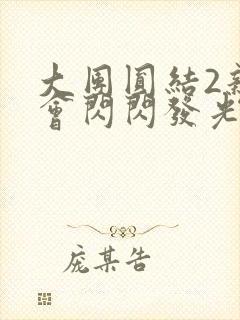 大團圓結2新
會閃閃發光
庞某告